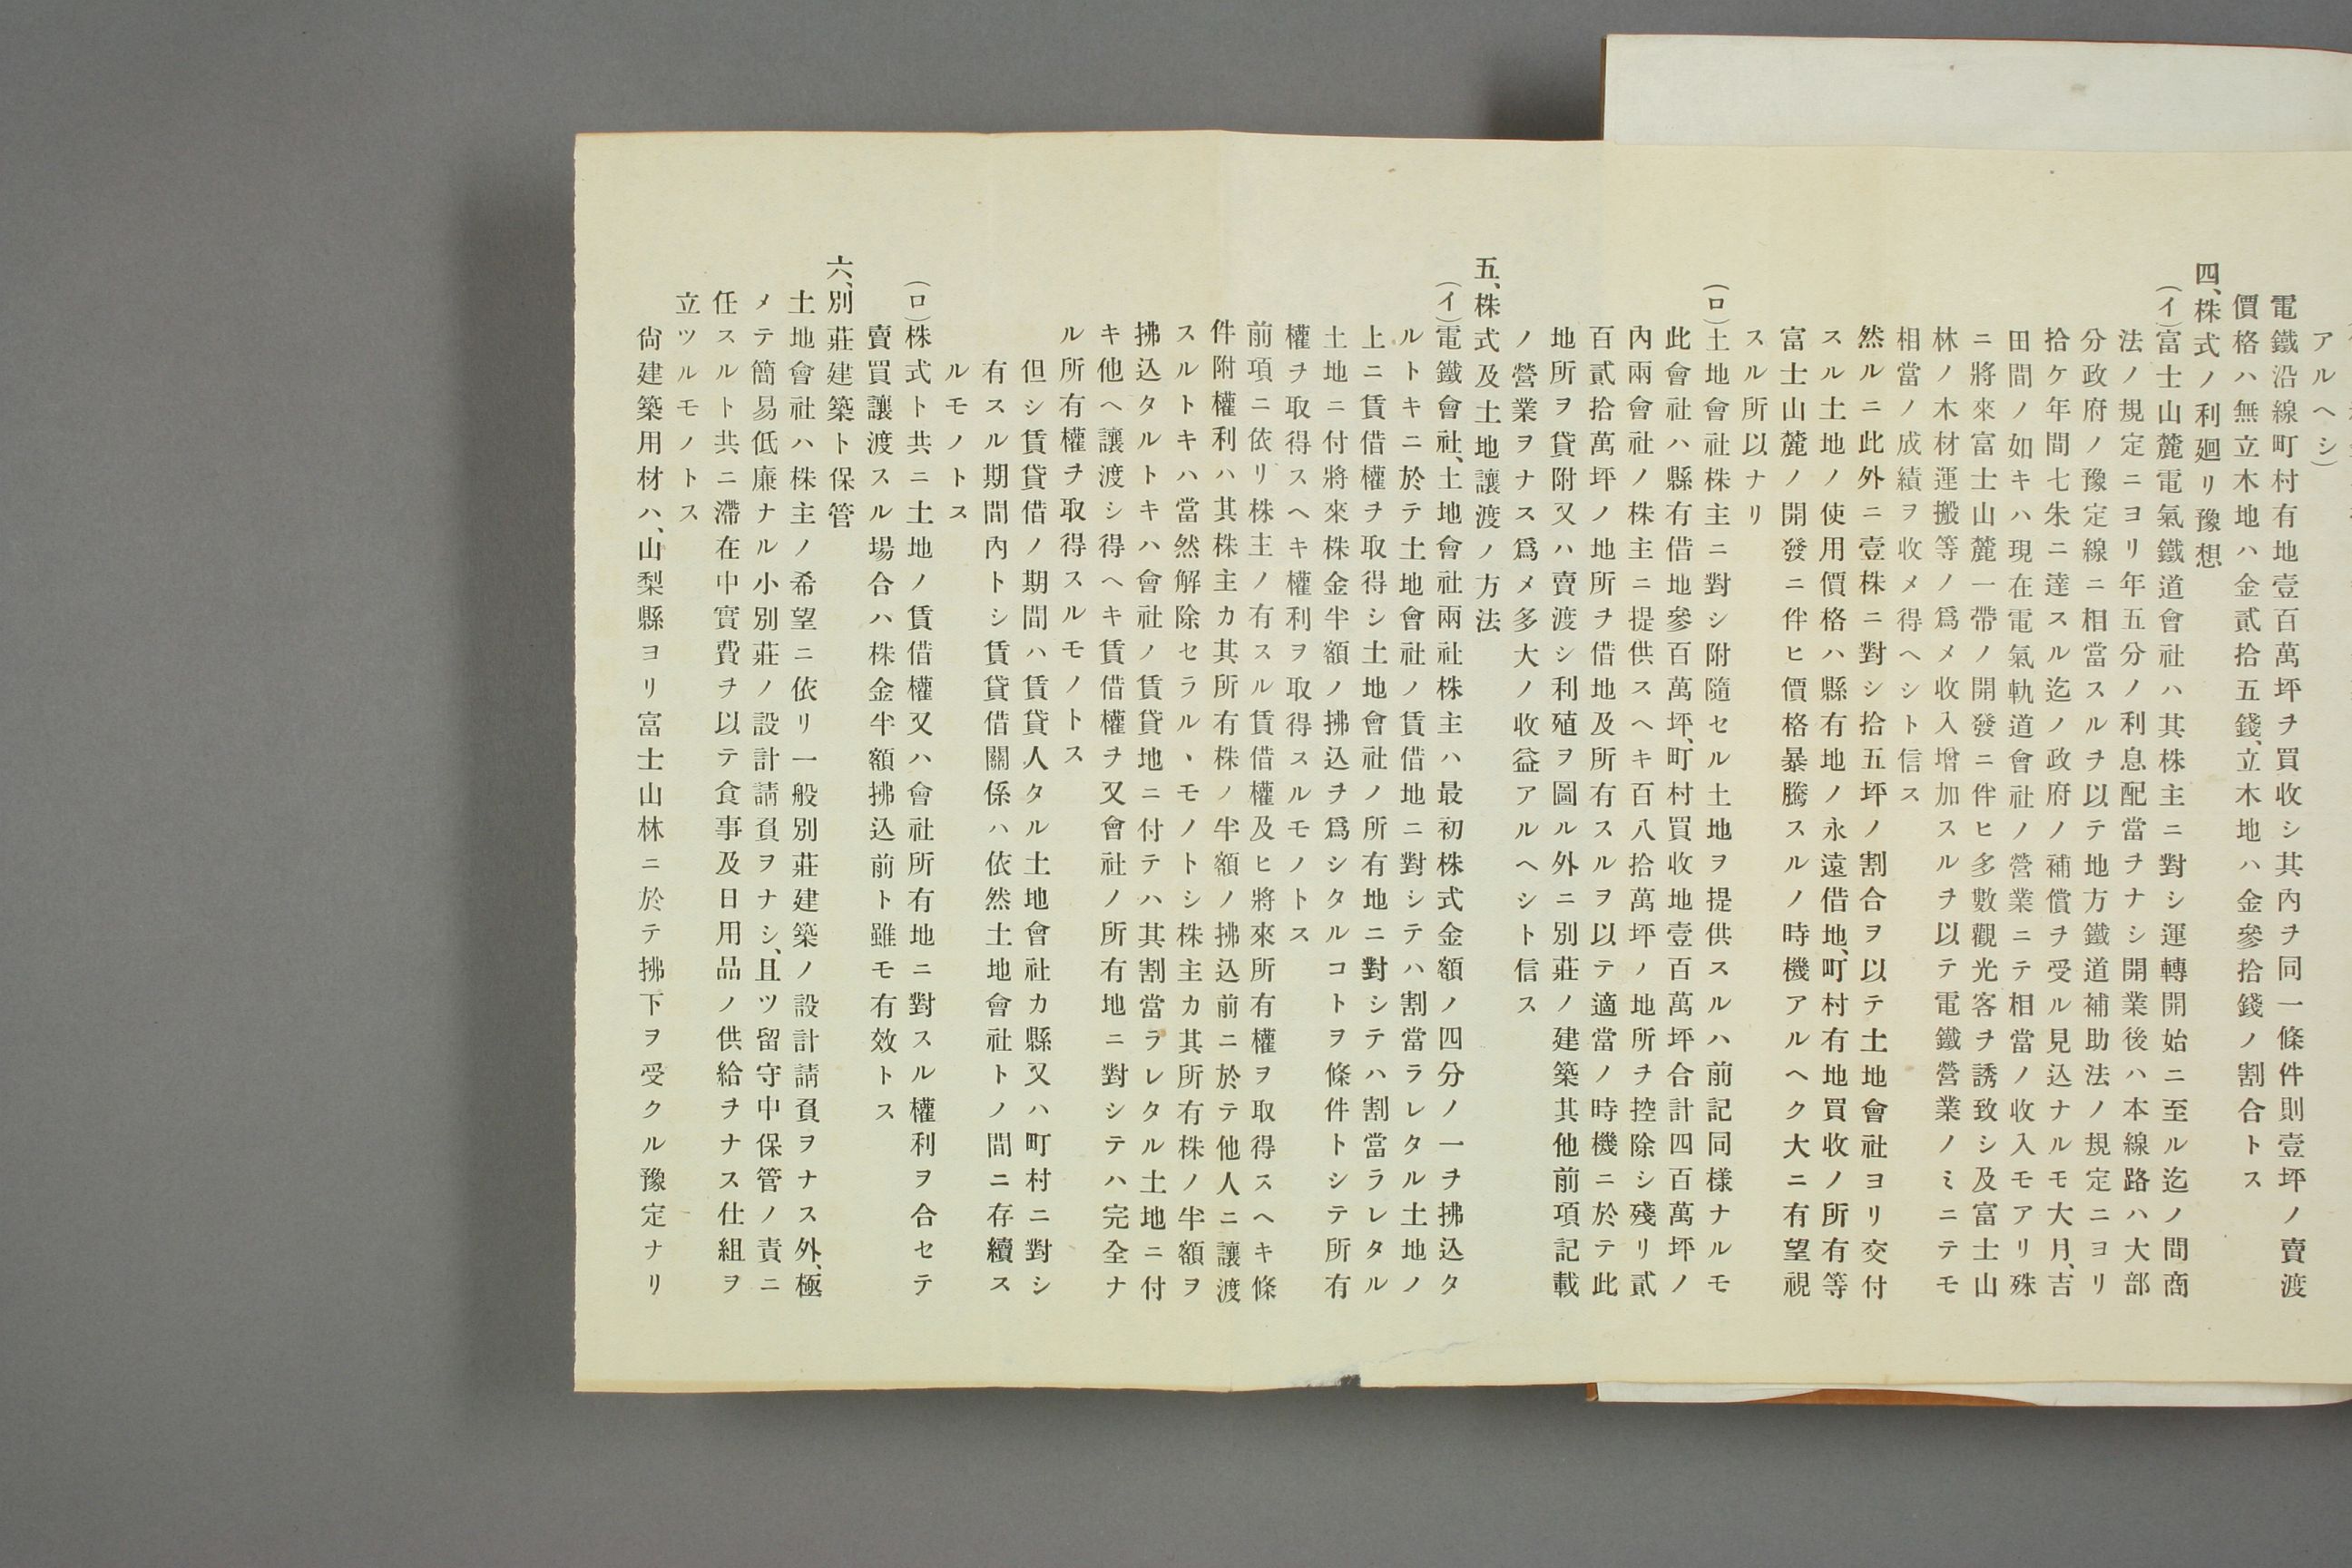 アルヘシ)
電鐵沿線町村有地壹百萬坪ヲ買收シ其內ヲ同一條件則壹坪ノ賣渡
價格ハ無立木地ハ金貳拾五錢、立木地ハ金參拾錢ノ割合トス
四、株式ノ利廻リ豫想
(イ)富士山麓電氣鐵道會社ハ其株主ニ對シ運轉開始ニ至ル迄ノ間商
法ノ規定ニヨリ年五分ノ利息配當ヲナシ開業後ハ本線路ハ大部
分政府ノ豫定線ニ相當スルヲ以テ地方鐵道補助法ノ規定ニヨリ
拾ケ年間七朱ニ達スル迄ノ政府ノ補償ヲ受ル見込ナルモ大月、吉
田間ノ如キハ現在電氣軌道會社ノ營業ニテ相當ノ收入モアリ殊
ニ將來富士山麓一帶ノ開發ニ伴ヒ多數觀光客ヲ誘致シ及富士山
林ノ木材運搬等ノ爲メ收入增加スルヲ以テ電鐵營業ノミニテモ
相當ノ成績ヲ收メ得ヘシト信ス
然ルニ此外ニ壹株ニ對シ拾五坪ノ割合ヲ以テ土地會社ヨリ交付
スル土地ノ使用價格ハ縣有地ノ永遠借地、町村有地買收ノ所有等
富士山麓ノ開發ニ伴ヒ價格暴騰スルノ時機アルヘク大ニ有望視
スル所以ナリ
(ロ)土地會社株主ニ對シ附隨セル土地ヲ提供スルハ前記同樣ナルモ
此會社ハ縣有借地參百萬坪、町村買收地壹百萬坪合計四百萬坪ノ
內兩會社ノ株主ニ提供スヘキ百八拾萬坪ノ地所ヲ控除シ殘リ貳
百貳拾萬坪ノ地所ヲ借地及所有スルヲ以テ適當ノ時機ニ於テ此
地所ヲ貸附又ハ賣渡シ利殖ヲ圖ル外ニ別莊ノ建築其他前項記載
ノ營業ヲナス爲メ多大ノ收益アルヘシト信ス
五、株式及土地讓渡ノ方法
(イ)電鐵會社、土地會社兩社株主ハ最初株式金額ノ四分ノ一ヲ拂込タ
ルトキニ於テ土地會社ノ賃借地ニ對シテハ割當ラレタル土地ノ
上ニ賃借權ヲ取得シ土地會社ノ所有地ニ對シテハ割當ラレタル
土地ニ付將來株金半額ノ拂込ヲ爲シタルコトヲ條件トシテ所有
權ヲ取得スヘキ權利ヲ取得スルモノトス
前項ニ依リ株主ノ有スル賃借權及ヒ將來所有權ヲ取得スヘキ條
件附權利ハ其株主カ其所有株ノ半額ノ拂込前ニ於テ他人ニ讓渡
スルトキハ當然解除セラル、モノトシ株主カ其所有株ノ半額ヲ
拂込タルトキハ會社ノ賃貸地ニ付テハ其割當ラレタル土地ニ付
キ他ヘ讓渡シ得ヘキ賃借權ヲ又會社ノ所有地ニ對シテハ完全ナ
ル所有權ヲ取得スルモノトス
但シ賃貸借ノ期間ハ賃貸人タル土地會社カ縣又ハ町村ニ對シ
有スル期間內トシ賃貸借關係ハ依然土地會社トノ間ニ存續ス
ルモノトス
(ロ)株式ト共ニ土地ノ賃借權又ハ會社所有地ニ對スル權利ヲ合セテ
賣買讓渡スル場合ハ株金半額拂込前ト雖モ有效トス
六、別莊建築ト保管
土地會社ハ株主ノ希望ニ依リ一般別莊建築ノ設計請負ヲナス外、極
メテ簡易低廉ナル小別莊ノ設計請負ヲナシ、且ツ留守中保管ノ責ニ
任スルト共ニ滯在中實費ヲ以テ食事及日用品ノ供給ヲナス仕組ヲ
立ツルモノトス
尙建築用材ハ、山梨縣ヨリ富士山林ニ於テ拂下ヲ受クル豫定ナリ